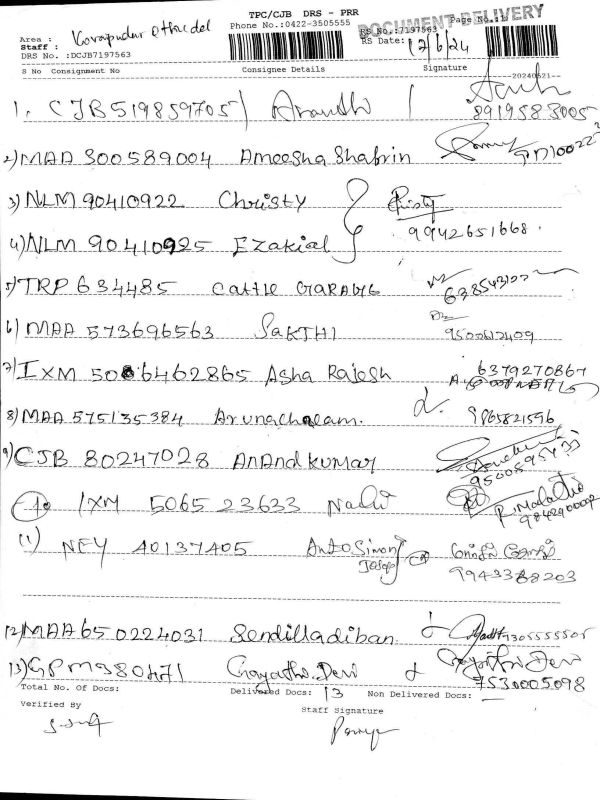 TPC/CJB DRS - PRR
DOCUMENT DELIVERY
Phone No.:0422-3505555
Page No.:1
Area :
Staff :
RS No.:7197563
DRS No. :DCJB7197563
RS Date: 12/6/24
S No Consignment No Consignee Details Signature
--20240621--
1. CJB519859705 8919583005
2) MAA 300589004 Ameesha Shabrin
3) NLM 90410922 Christy
9942651668
4) NLM 90410925 Ezakial
5) TRP 634485 Cattle GARAGE
6) MAA 573696563 SAKTHI 9500612409
7) IXM 5066462865 Asha Rajesh 6379270867
8) MAA 575135384 Arunachalam. 9865821596
9) CJB 80247028 Anand kumar 9500595433
10 IXM 5065 23633
R. Malathi
11) NEY 40137405 Anto Simon
Joseph
9943388203
12) MAA 65 0224031 Sendilladiban 9305555505
13) GPM980471 Gayathri Devi Gayathri Devi
7530005098
Total No. Of Docs: Delivered Docs: 13 Non Delivered Docs: —
Verified By Staff Signature